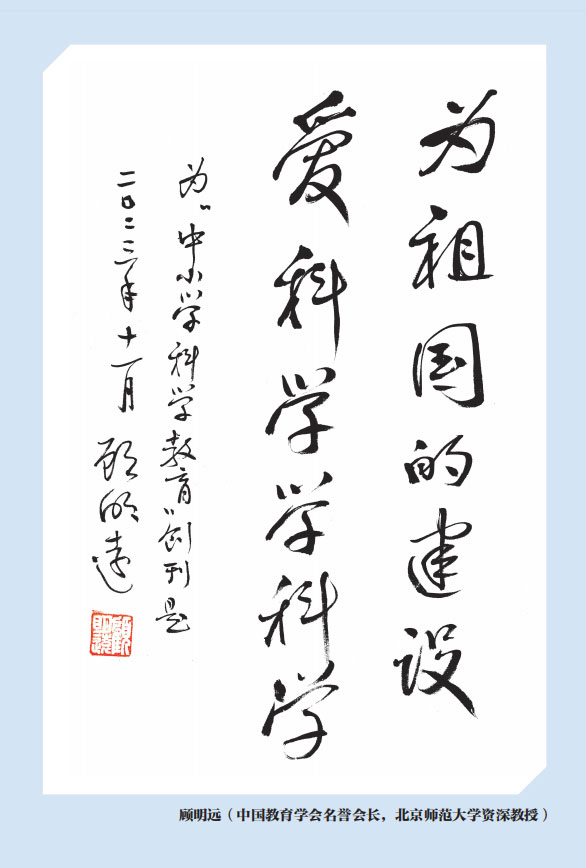 为祖国的建设
爱科学学科学
为“中小学科学教育”创刊题
二〇二三年十一月 顾明远
顾明远（中国教育学会名誉会长，北京师范大学资深教授）